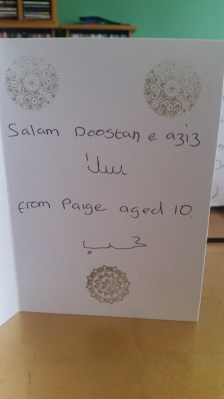 Salam Doostan e aziz
سلام
from Paige aged 10.